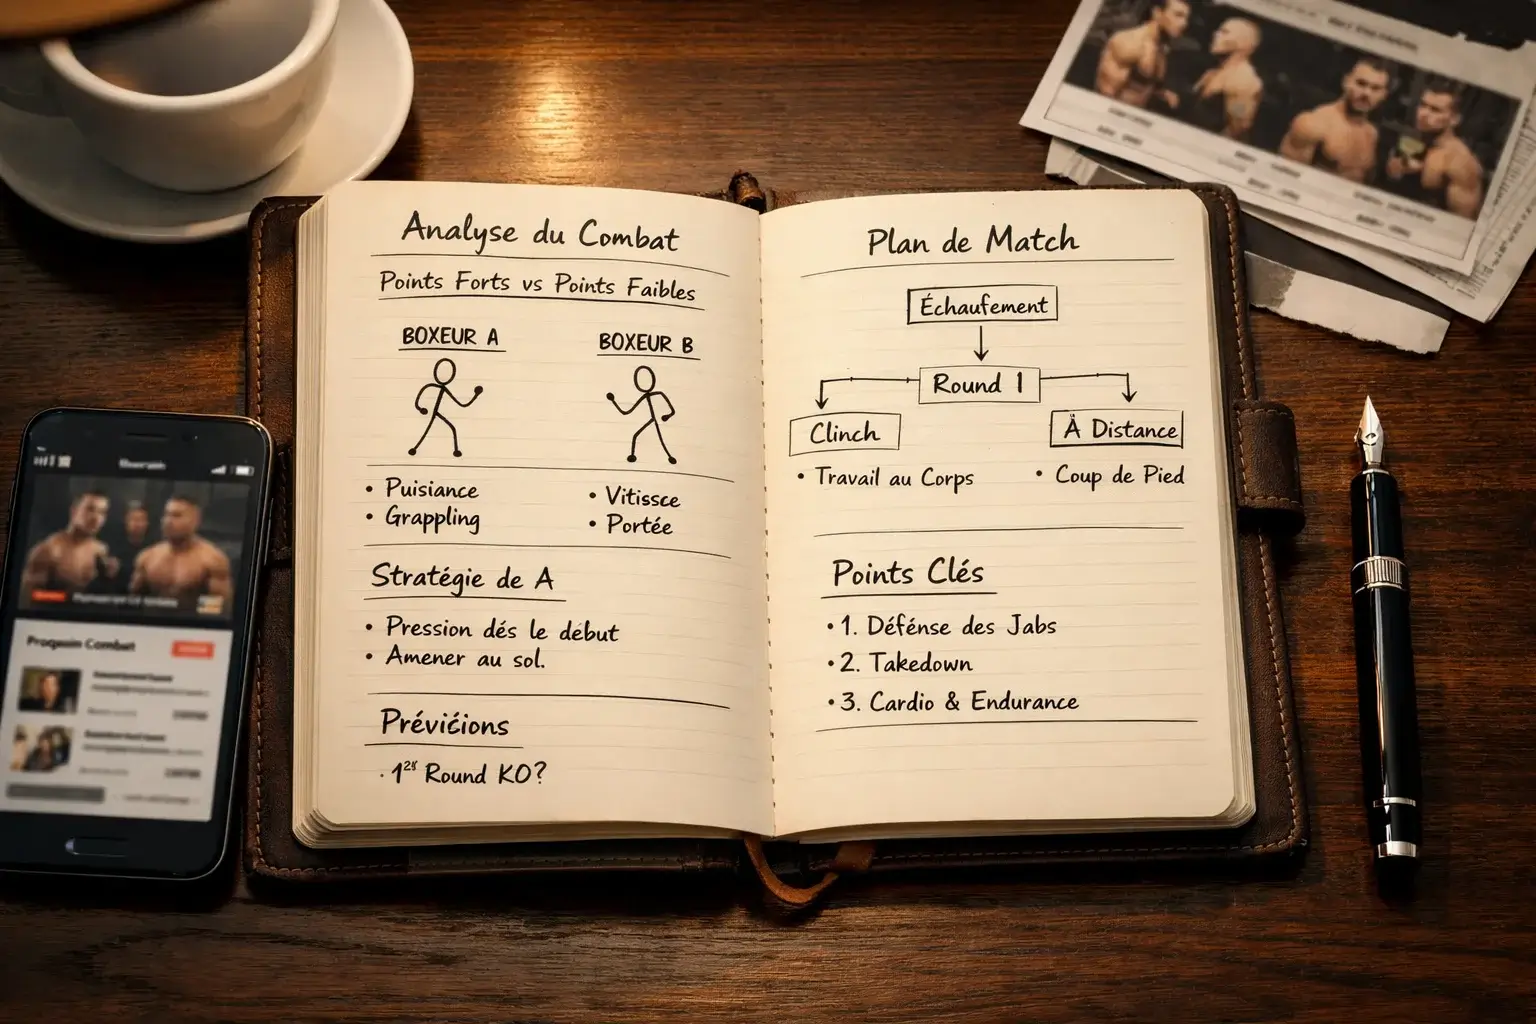 Analyse du Combat
Points Forts vs Points Faibles
BOXEUR A
BOXEUR B
• Puisiance
• Grappling
• Vitissce
• Portée
Stratégie de A
• Pression dés le début
• Amener au sol.
Prévicions
· 1 Round KO?
Plan de Match
Échaufement
Round 1
Clinch
À Distance
• Travail au Corps
• Coup de Pied
Points Clés
• 1. Défénse des Jabs
• 2. Takedown
• 3. Cardio & Endurance
Proqasin Combat